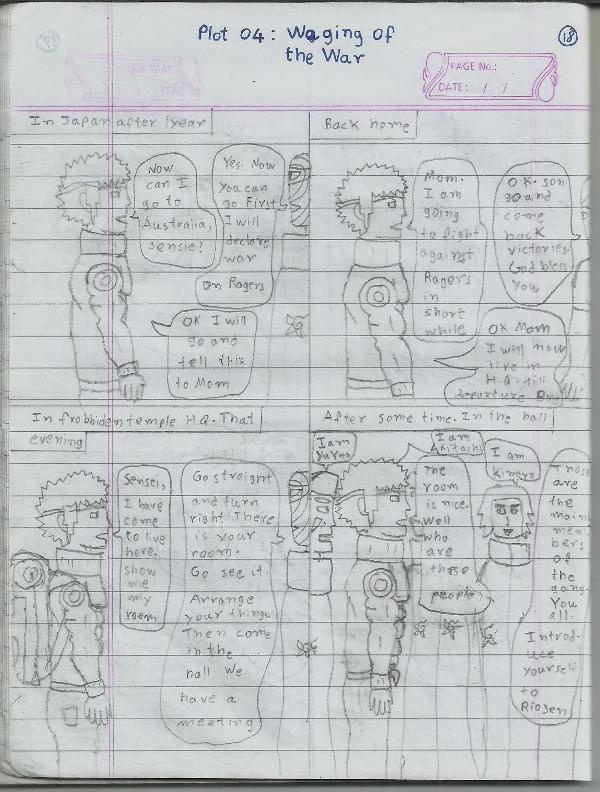 Plot 04: Waging of
the War
18
PAGE No.:
DATE: / /
In Japan after 1year
Now
can I
go to
Australia,
sensie?
Yes. Now
You can
go First
I will
declare
war
On Ragers
OK I will
go and
tell this
to Mom
Back home
Mom.
I am
going
to fight
against
Ragers
in
short
while
OK. son
go and
come
back
victories.
God bless
You,
OK Mom
I will now
live in
H.Q. till
departure Bye
In frobbiden temple H.Q. That
evening
Sensei,
I have
come
to live
here.
show
me
my
room
Go straight
and turn
right. There
is your
room.
Go see it.
Arrange
your things.
Then come
in the
hall We
have a
meeting
After some time. In the hall
I am
I am
Akitachi
I am
The
room
is nice.
well
who
are
these
people?
Those
are
the
main
mem
bers
of
the
gang.
You
all.
Introd-
uce
yourself
to
Riosen